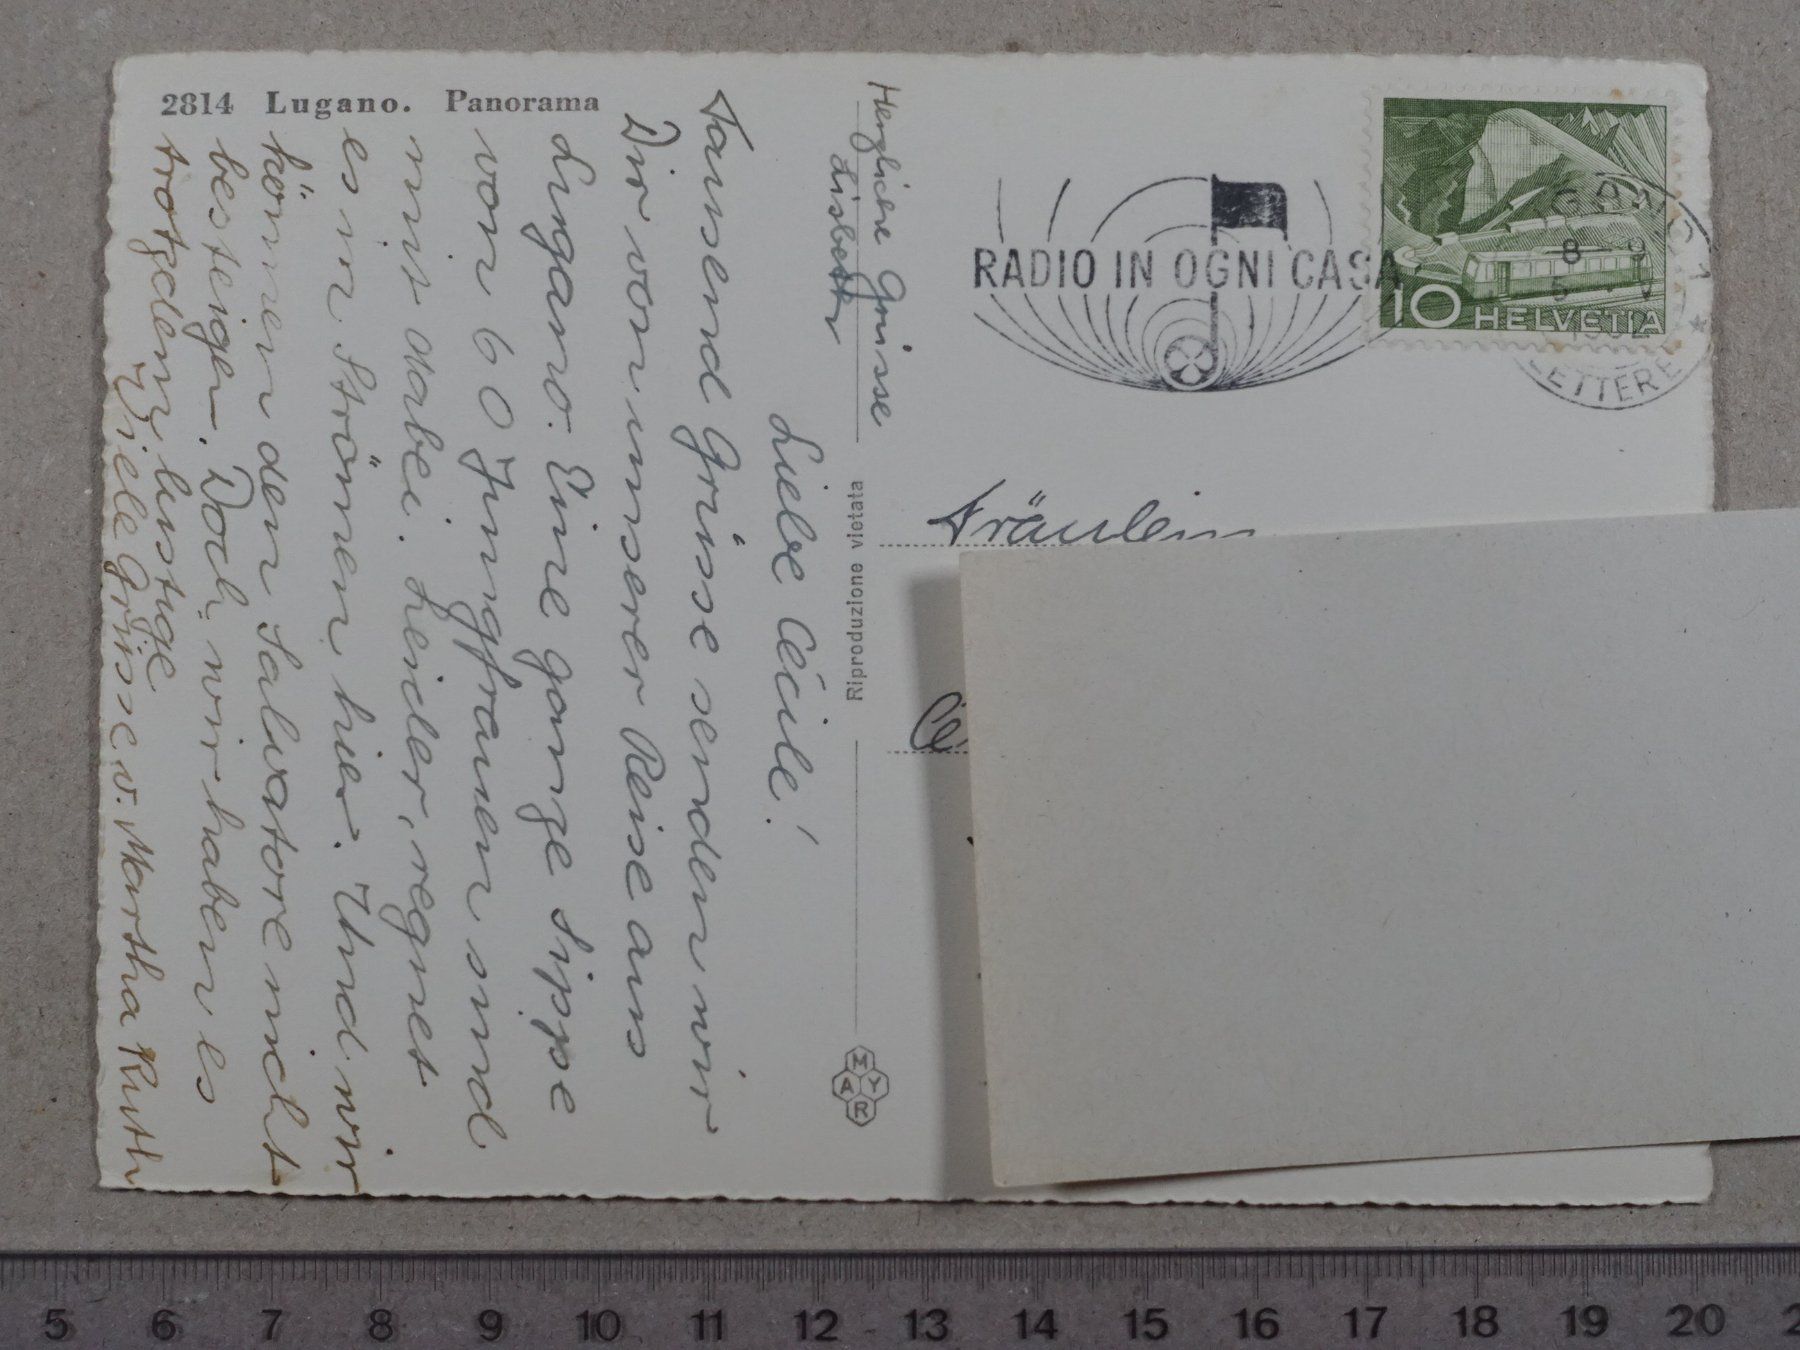 2814 Lugano. Panorama
Liebe Cécile!
Tausend Grüsse senden wir
Dir von unserer Reise aus
Lugano. Eine ganze Sippe
von 60 Jungfrauen sind
mit dabei. Leider, regnet
es in Strömen hier. Und wir
können den Salvatore nicht
besteigen. Doch, wir haben es
trotzdem lustige
Viele Grüsse v. Martha Ruth
Herzliche Grüsse
Lisbeth
Riproduzione vietata
MYAR
RADIO IN OGNI CASA
8 - 9
5 V
1952
LETTERE
10 HELVETIA
Fräulein
5 6 7 8 9 10 11 12 13 14 15 16 17 18 19 20